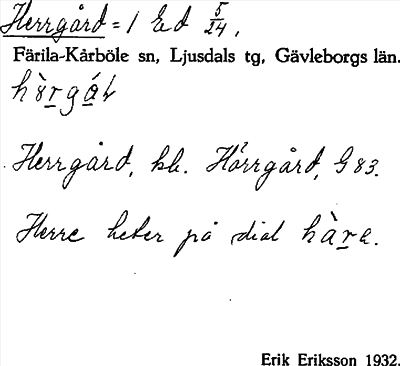 Herrgård = 1 Ed 5/24,
Färila-Kårböle sn, Ljusdals tg, Gävleborgs län.
Herrgård, kb. Hörrgård, G 83.
Herre heter på dial hàre.
Erik Eriksson 1932.